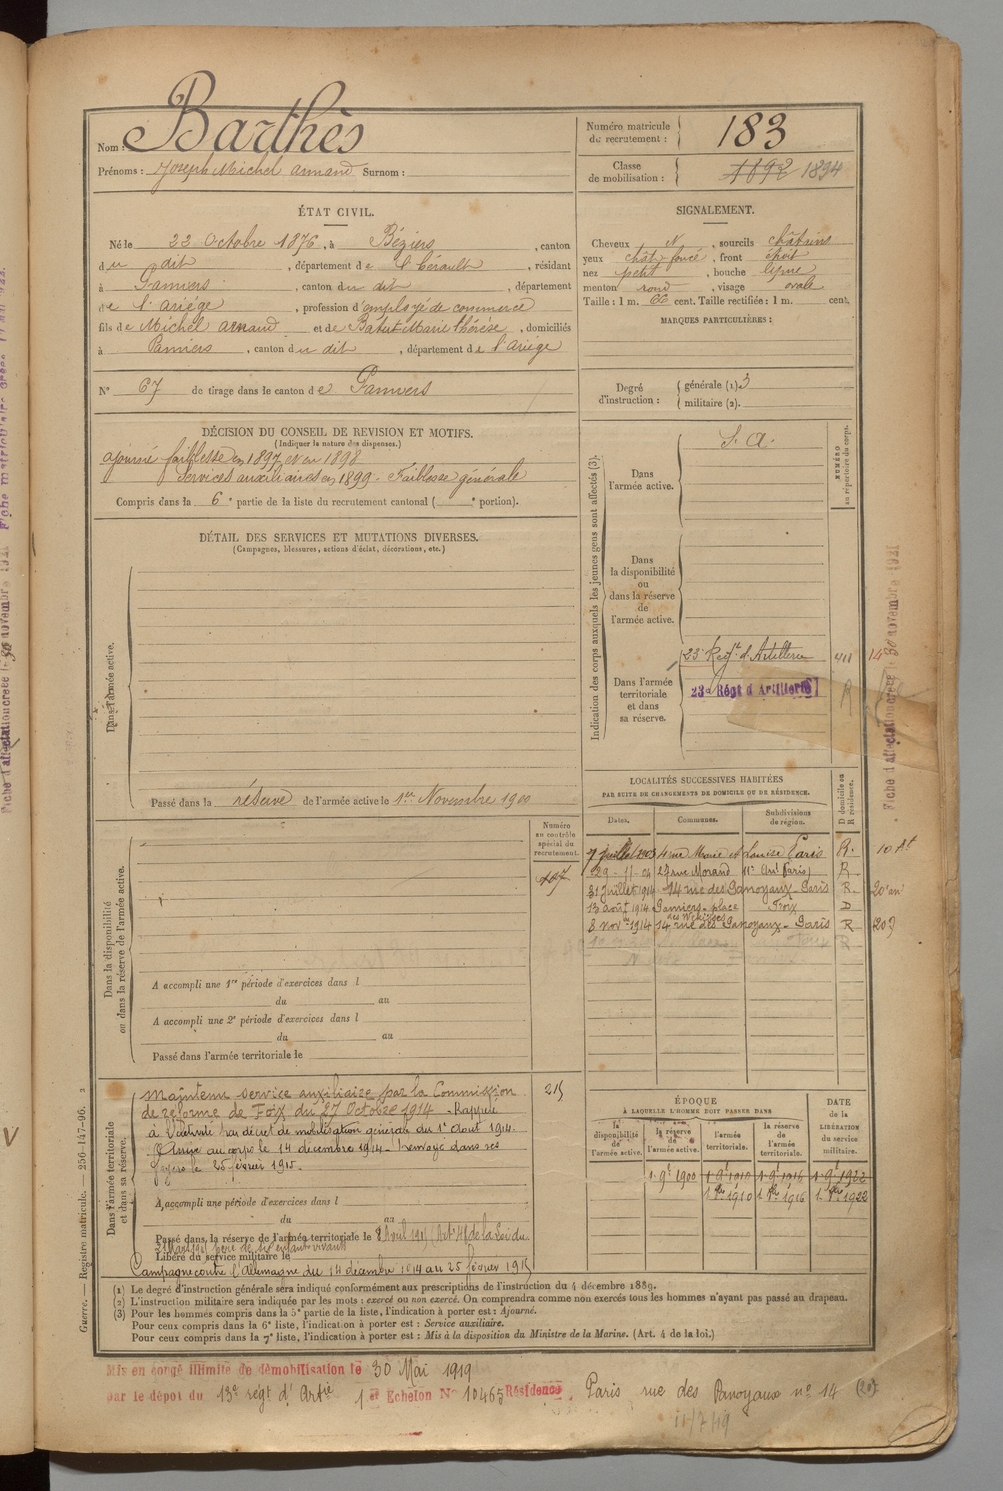 Nom : Barthès
Prénoms : Joseph Michel Armand Surnom :
Numéro matricule du recrutement : 183
Classe de mobilisation : 1892 1894
ÉTAT CIVIL.
Né le 22 Octobre 1876, à Béziers, canton
du dit, département de l'Hérault, résidant
à Pamiers, canton du dit, département
de l'Ariège, profession d'employé de commerce
fils de Michel Armand et de Batut Marie Thérèse, domiciliés
à Pamiers, canton du dit, département de l'Ariège
N° 67 de tirage dans le canton de Pamiers
SIGNALEMENT.
Cheveux N, sourcils châtains
yeux chât. foncé, front étroit
nez petit, bouche
menton rond, visage ovale
Taille : 1 m. 66 cent. Taille rectifiée : 1 m. cent.
MARQUES PARTICULIÈRES :
Degré d'instruction : générale (1) 3
militaire (2).
DÉCISION DU CONSEIL DE REVISION ET MOTIFS.
(Indiquer la nature des dispenses.)
ajourné faiblesse en 1897 et en 1898
Services auxiliaires en 1899 - Faiblesse générale
Compris dans la 6e partie de la liste du recrutement cantonal ( e portion).
DÉTAIL DES SERVICES ET MUTATIONS DIVERSES.
(Campagnes, blessures, actions d'éclat, décorations, etc.)
Dans l'armée active.
Passé dans la réserve de l'armée active le 1er Novembre 1900
Indication des corps auxquels les jeunes gens sont affectés (3).
NUMÉRO au répertoire du corps.
Dans l'armée active.
S. A.
Dans la disponibilité ou dans la réserve de l'armée active.
Dans l'armée territoriale et dans sa réserve.
23e Regt d'Artillerie
23e Régt d'Artillerie
Fiche d'affectation créée le 30 novembre 1921
LOCALITÉS SUCCESSIVES HABITÉES
PAR SUITE DE CHANGEMENTS DE DOMICILE OU DE RÉSIDENCE.
Dates. Communes. Subdivisions de région. D domicile ou R résidence.
7 juillet 1903 4 rue Louise Paris R.
29-11-04 27 rue Morand 11e (Arrt Paris) R
31 juillet 1914 14 rue des Panoyaux - Paris R. 20e arrt
13 août 1914 Pamiers - place Foix D
8 novbre 1914 14 rue des Panoyaux - Paris R (20)
Dans la disponibilité ou dans la réserve de l'armée active.
Numéro au contrôle spécial du recrutement.
A accompli une 1re période d'exercices dans l
du au
A accompli une 2e période d'exercices dans l
du au
Passé dans l'armée territoriale le
Dans l'armée territoriale et dans sa réserve.
Maintenu service auxiliaire par la Commission 215
de réforme de Foix du 27 Octobre 1914 - Rappelé
à l'activité par décret de mobilisation générale du 1er Août 1914.
Arrivé au corps le 14 décembre 1914 - Renvoyé dans ses
foyers le 25 février 1915.
A accompli une période d'exercices dans l
du au
Passé dans la réserve de l'armée territoriale le 8 Avril 1915 (Art. 48 de la Loi du
21 Mars 1905 père de six enfants vivants
Libéré du service militaire le
Campagne contre l'Allemagne du 14 décembre 1914 au 25 février 1915
ÉPOQUE
À LAQUELLE L'HOMME DOIT PASSER DANS
la disponibilité de l'armée active. la réserve de l'armée active. l'armée territoriale. la réserve de l'armée territoriale.
DATE de la LIBÉRATION du service militaire.
1.9bre 1900 1.9bre 1910 1.9bre 1916 1.9bre 1922
1.8bre 1910 1.8bre 1916 1.8bre 1922
(1) Le degré d'instruction générale sera indiqué conformément aux prescriptions de l'instruction du 4 décembre 1889.
(2) L'instruction militaire sera indiquée par les mots : exercé ou non exercé. On comprendra comme non exercés tous les hommes n'ayant pas passé au drapeau.
(3) Pour les hommes compris dans la 5e partie de la liste, l'indication à porter est : Ajourné.
Pour ceux compris dans la 6e liste, l'indication à porter est : Service auxiliaire.
Pour ceux compris dans la 7e liste, l'indication à porter est : Mis à la disposition du Ministre de la Marine. (Art. 4 de la loi.)
Guerre. — Registre matricule. — 256-147-96. 2
Mis en congé illimité de démobilisation le 30 Mai 1919
par le dépôt du 13e régt d'Artie 1er Echelon N° 10465 Résidence Paris rue des Panoyaux n° 14 (20)
11/7/19